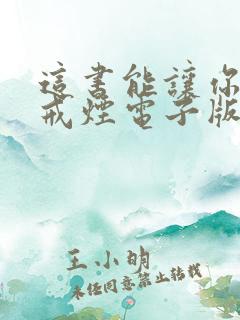 這書能讓你
戒煙電子版
王小明
未經同意禁止轉載